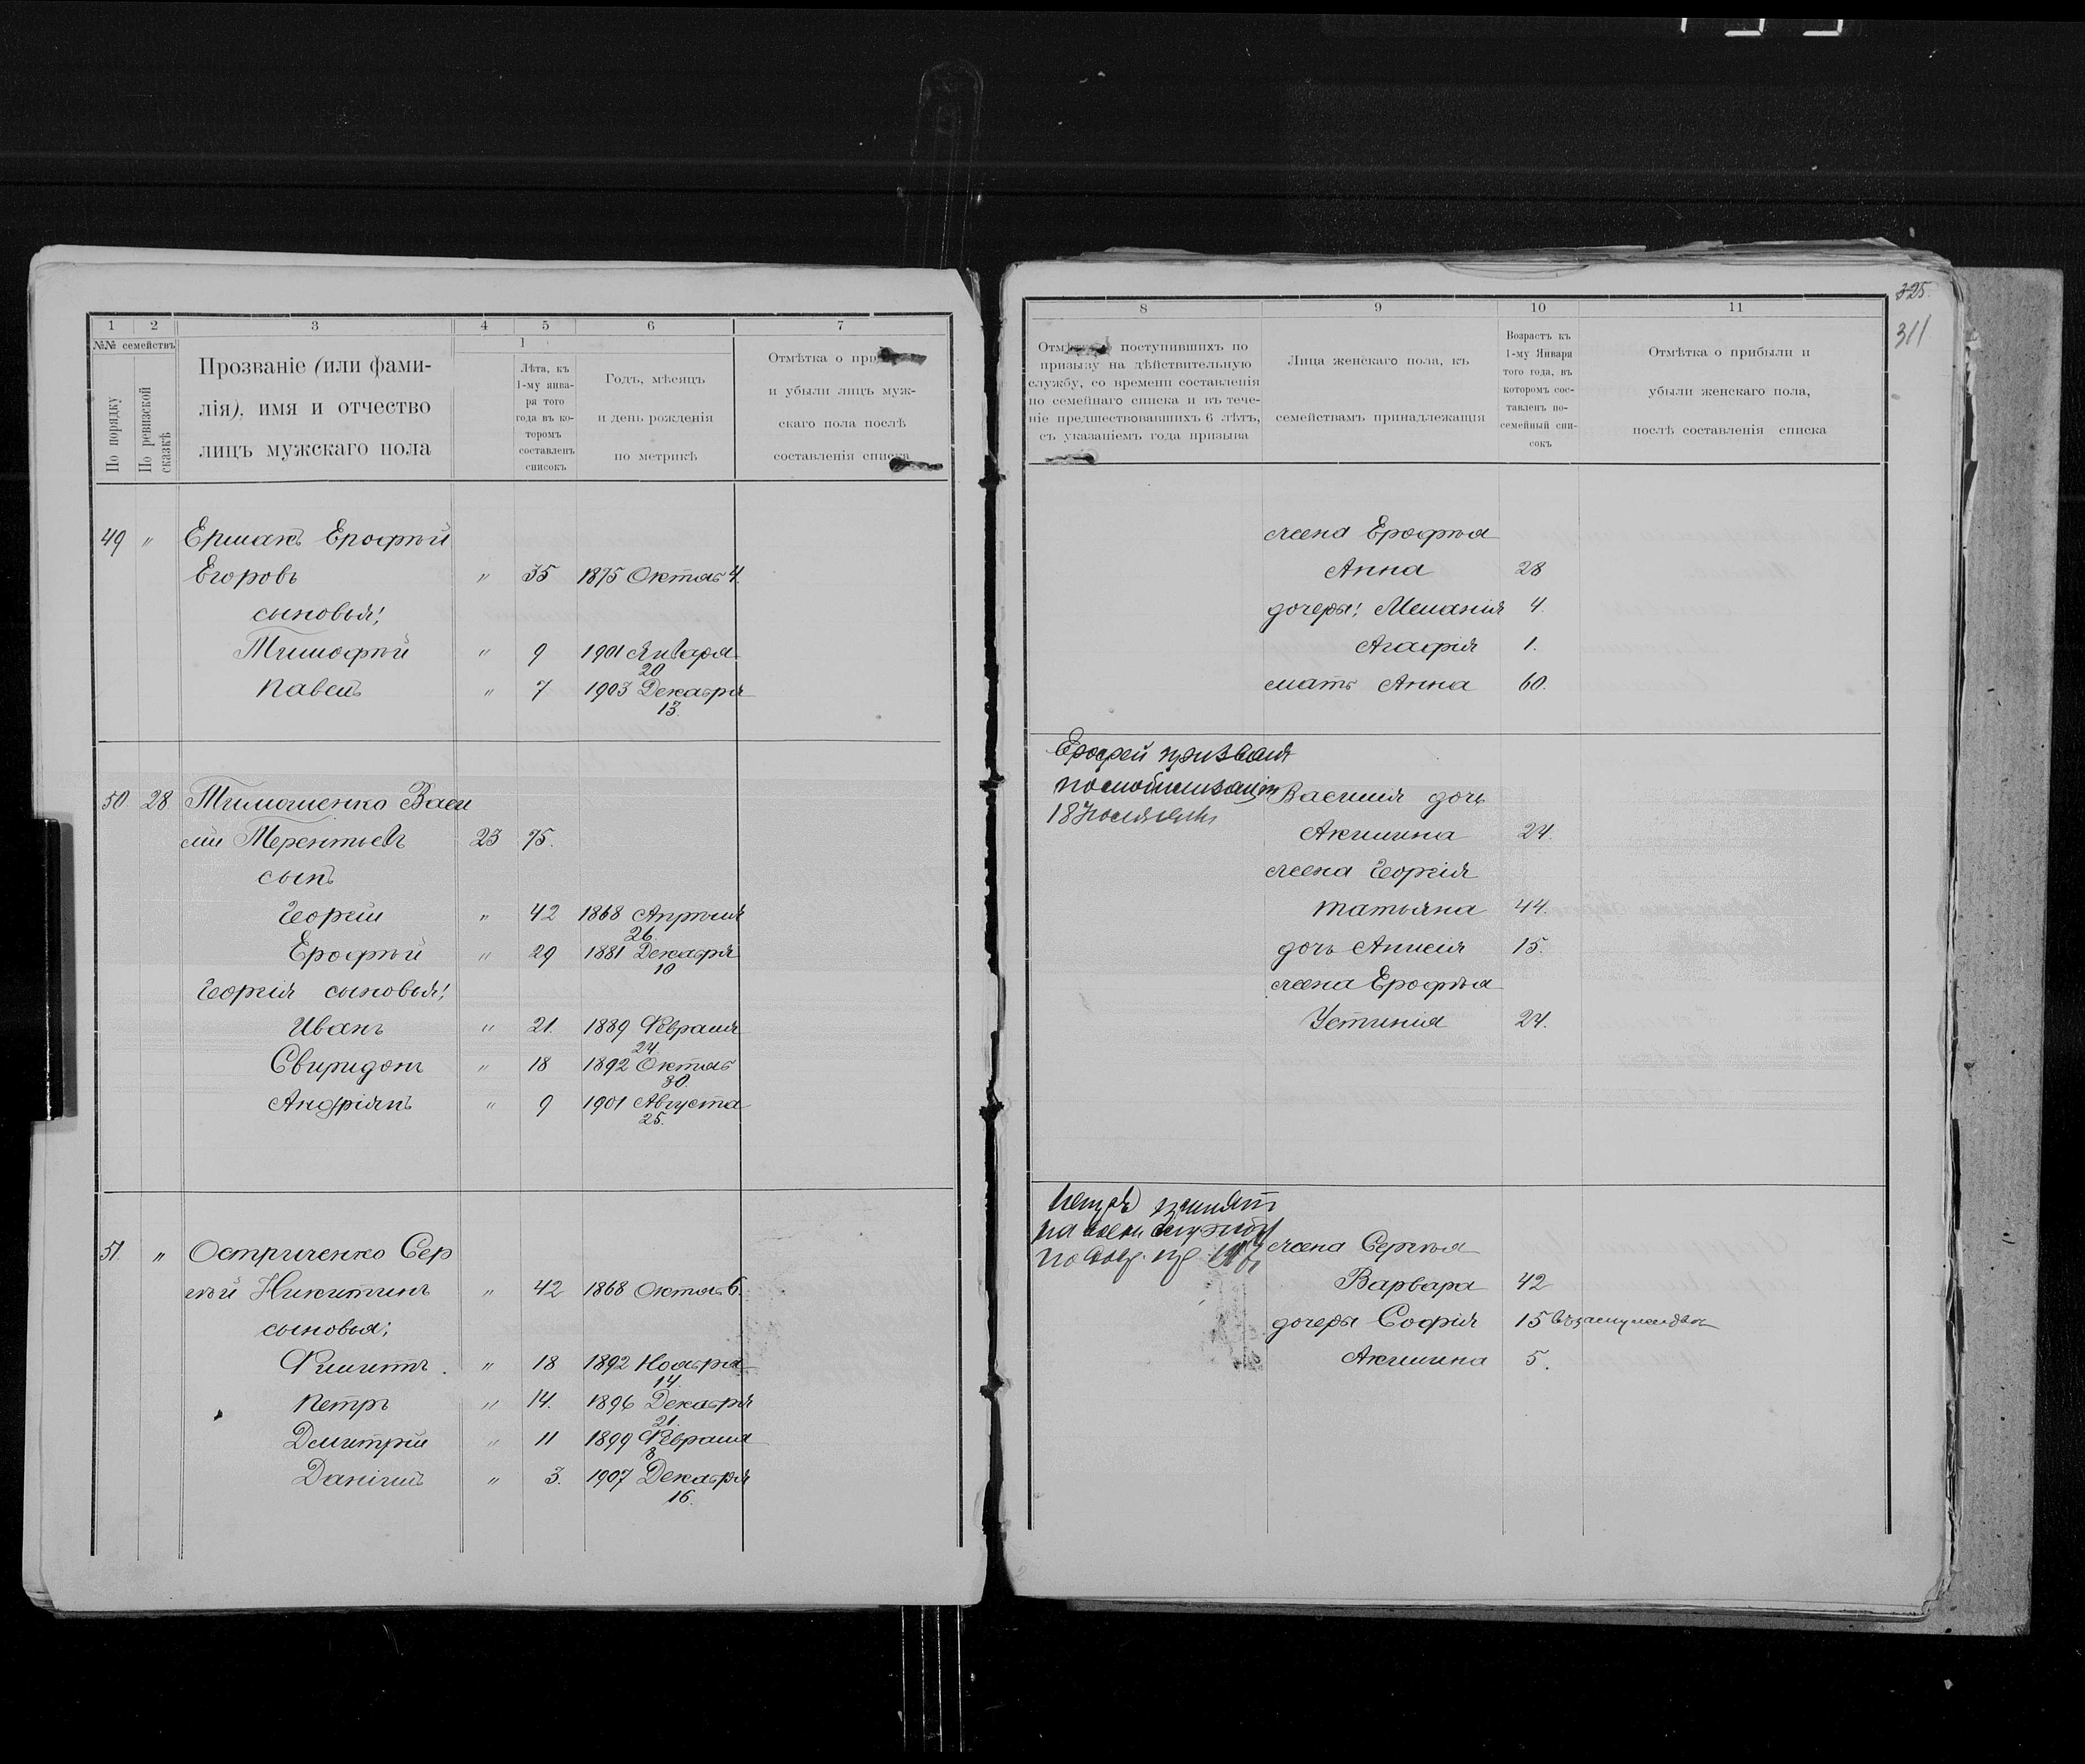 1 2 3 4 5 6 7
№№ семействъ
По порядку
По ревизской сказкѣ
Прозваніе (или фами-
лія), имя и отчество
лицъ мужскаго пола
1
Лѣта, къ
1-му янва-
ря того
года въ ко-
торомъ
составленъ
списокъ
Годъ, мѣсяцъ
и день рожденія
по метрикѣ
Отмѣтка о при
и убыли лицъ муж-
скаго пола послѣ
составленія списка
49 " Ермакъ Ерофѣй
Егоровъ " 35 1875 Октяб 4.
сыновья:
Тимофѣй " 9 1901 Января
20
Павелъ " 7 1903 Декабря
13.
50. 28 Тимошенко Васи
лій Терентьевъ 23 75.
сынъ
Георгій " 42 1868 Апрѣля
26.
Ерофѣй " 29 1881 Декабря
10
Георгія сыновья:
Иванъ " 21. 1889 Февраля
24.
Свиридонъ " 18 1892 Октяб
30.
Андріянъ " 9 1901 Августа
25.
51. " Остриченко Сер
гѣй Никитинъ " 42 1868 Октяб. 6.
сыновья:
Филиптъ. " 18 1892 Ноября
14.
Петръ " 14. 1896 Декабря
21.
Дмитрій " 11 1899 Февраля
8
Даніилъ " 3. 1907 Декабря
16.
325.
311
8 9 10 11
поступившихъ по
призыву на дѣйствительную
службу, со времени составленія
по семейнаго списка и въ тече-
ніе предшествовавшихъ 6 лѣтъ,
съ указаніемъ года призыва
Лица женскаго пола, къ
семействамъ принадлежащія
Возрастъ къ
1-му Января
того года, въ
которомъ сос-
тавленъ по-
семейный спи-
сокъ
Отмѣтка о прибыли и
убыли женскаго пола,
послѣ составленія списка
жена Ерофѣя
Анна 28
дочеры: Меланія 4.
Агафія 1.
мать Анна 60.
Ерофей призванъ
по мобилизаціи
18
Василія дочь
Акилина 24.
жена Георгія
Татьяна 44.
дочь Анисія 15.
жена Ерофѣя
Устинія 24.
Петръ принятъ
на воен службу
по
жена Сергѣя
Варвара 42
дочеры Софія 15 въ замужествѣ
Акилина 5.